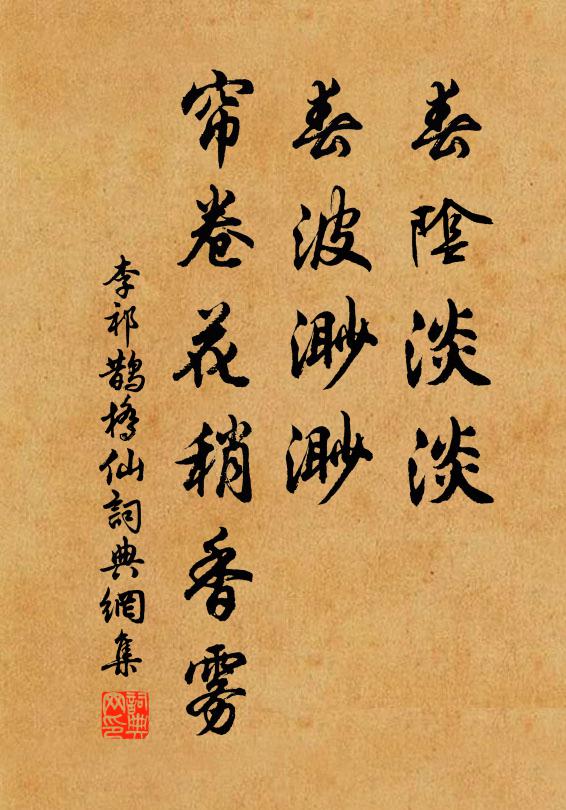 春陰淡淡
春波渺渺
帘卷花稍香雾
李祁鵲橋仙詞典網集
詞典网印